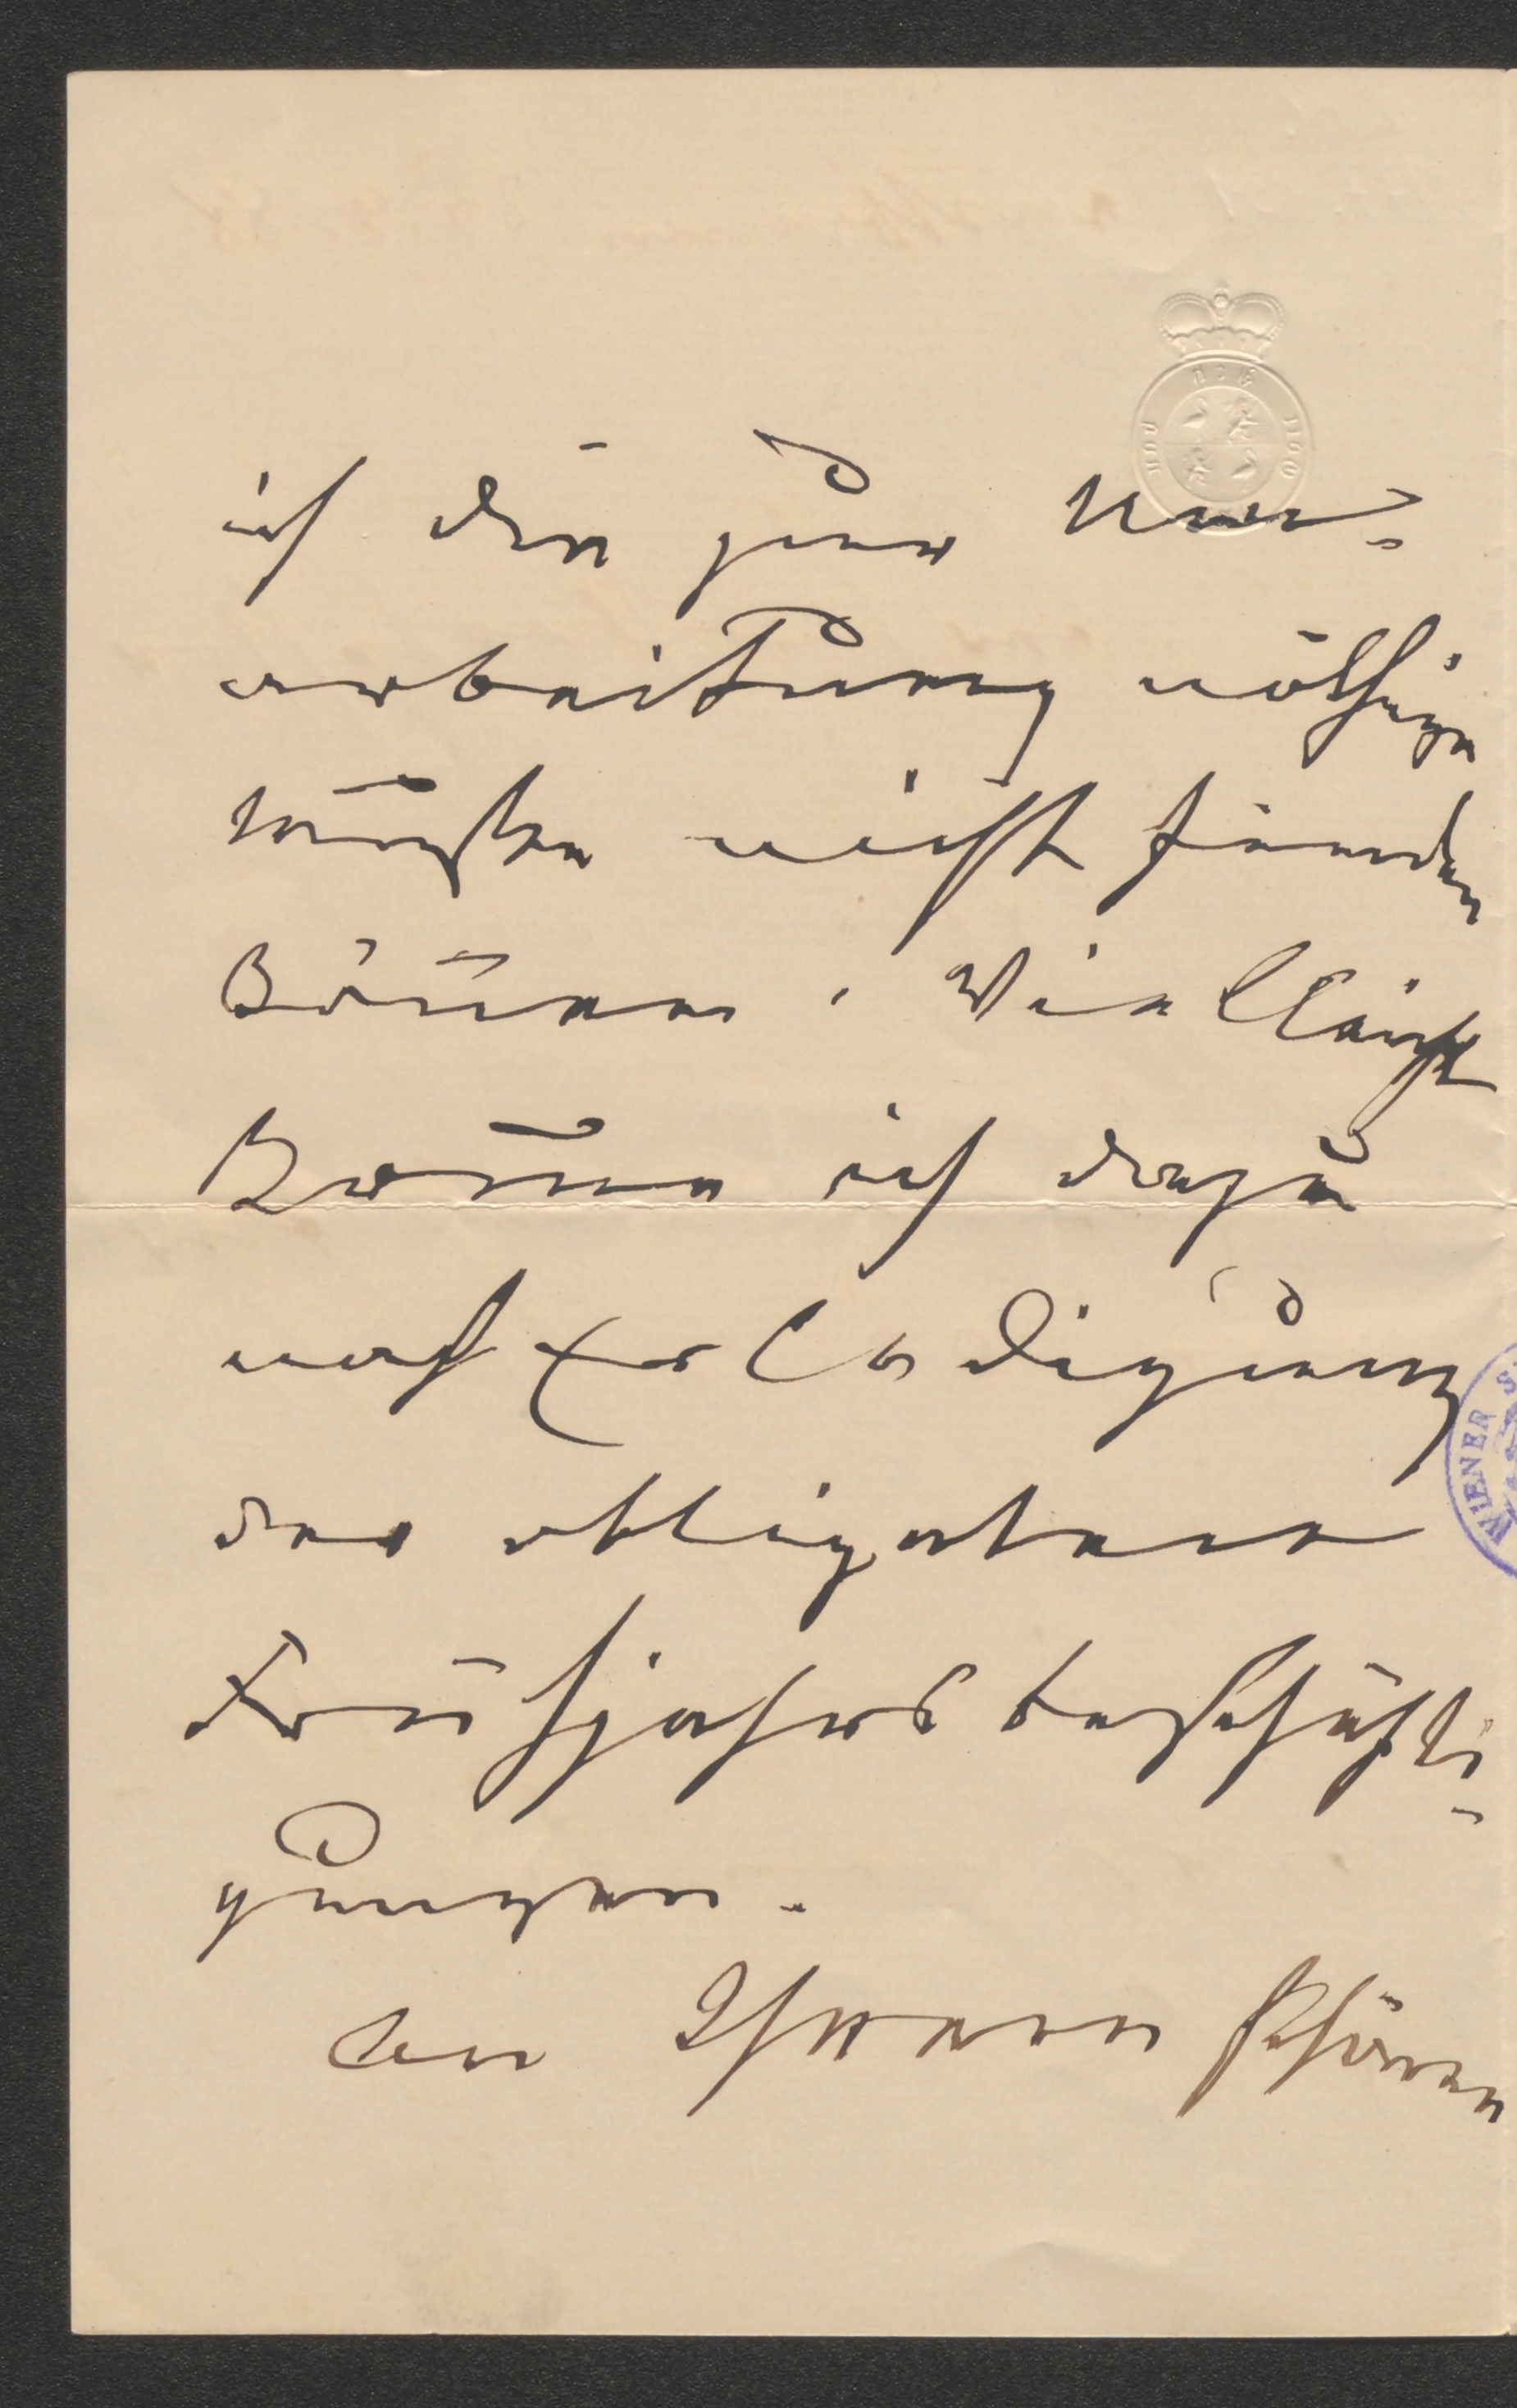 ich die zur Um-
arbeitung nöthige
Muße nicht finden
können. Vielleicht
komme ich dazu
nach Erledigung
der obligaten
Frühjahrsbeschäfti-
gungen.
An Ihrem schönen
WIENER S